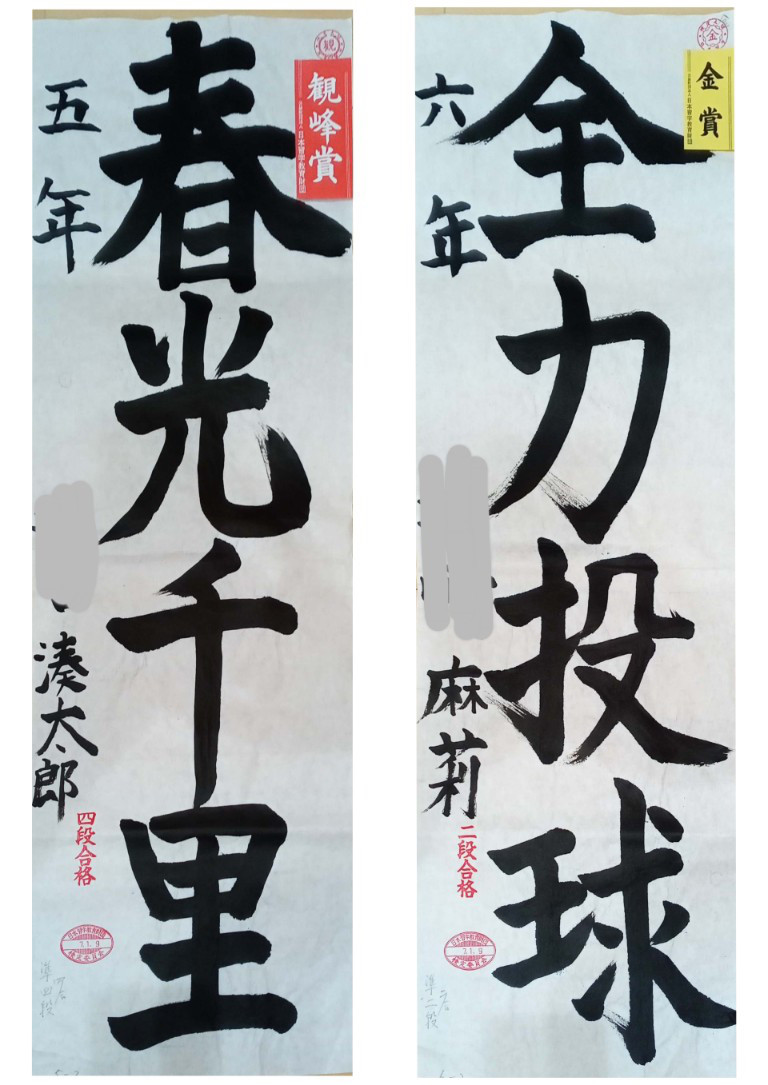 春光千里
五年
湊太郎
観峰賞
公益財団法人 日本習字教育財団
四段合格
準四段
全力投球
六年
麻莉
金賞
公益財団法人 日本習字教育財団
二段合格
準二段